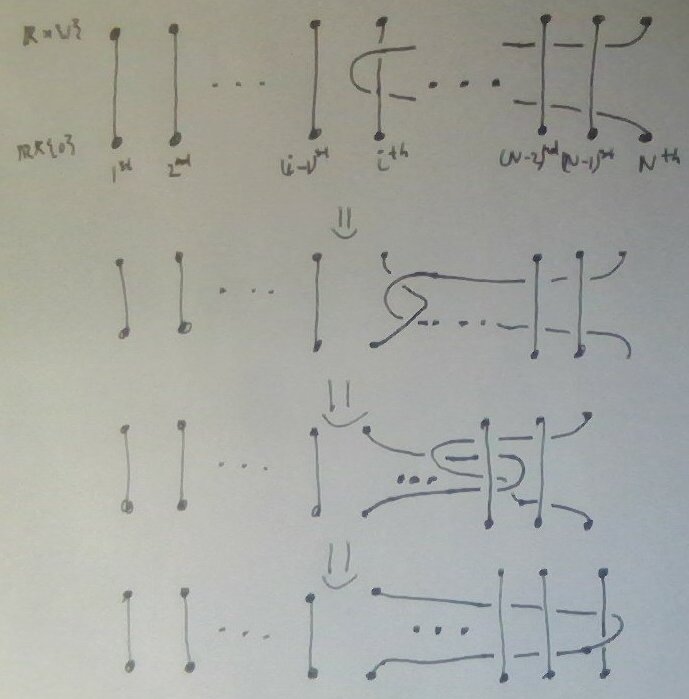 ℝ×{1}
ℝ×{0} 1st 2nd (i-1)st ith (N-2)nd (N-1)st Nth